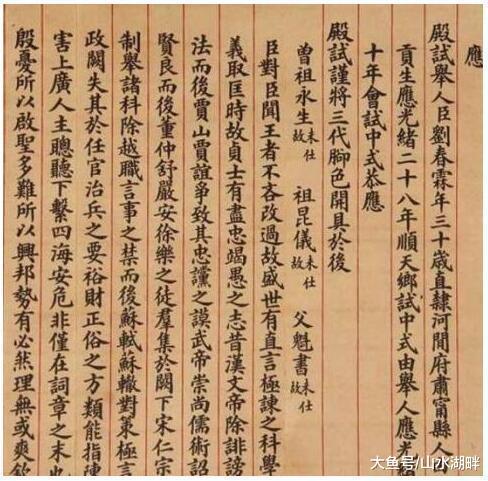 應
殿試舉人臣劉春霖年三十歲直隸河間府肅甯縣人由
貢生應光緒二十八年順天鄉試中式由舉人應光緒
十年會試中式恭應
殿試謹將三代腳色開具於後
曾祖永生未仕故 祖昆儀未仕故 父魁書未仕故
臣對臣聞王者不吝改過故盛世有直言極諫之科學
義取匡時故貞士有盡忠竭愚之志昔漢文帝除誹謗
法而後賈山賈誼爭致其忠讜之謨武帝崇尚儒術詔
賢良而後董仲舒嚴安徐樂之徒羣集於闕下宋仁宗
制舉諸科除越職言事之禁而後蘇軾蘇轍對策極言
政闕失其於任官治兵之要裕財正俗之方類能指陳
害上廣人主聰聽下繫四海安危非僅在詞章之末也
殷憂所以啟聖多難所以興邦勢有必然理無或爽欽
大魚号/山水湖畔